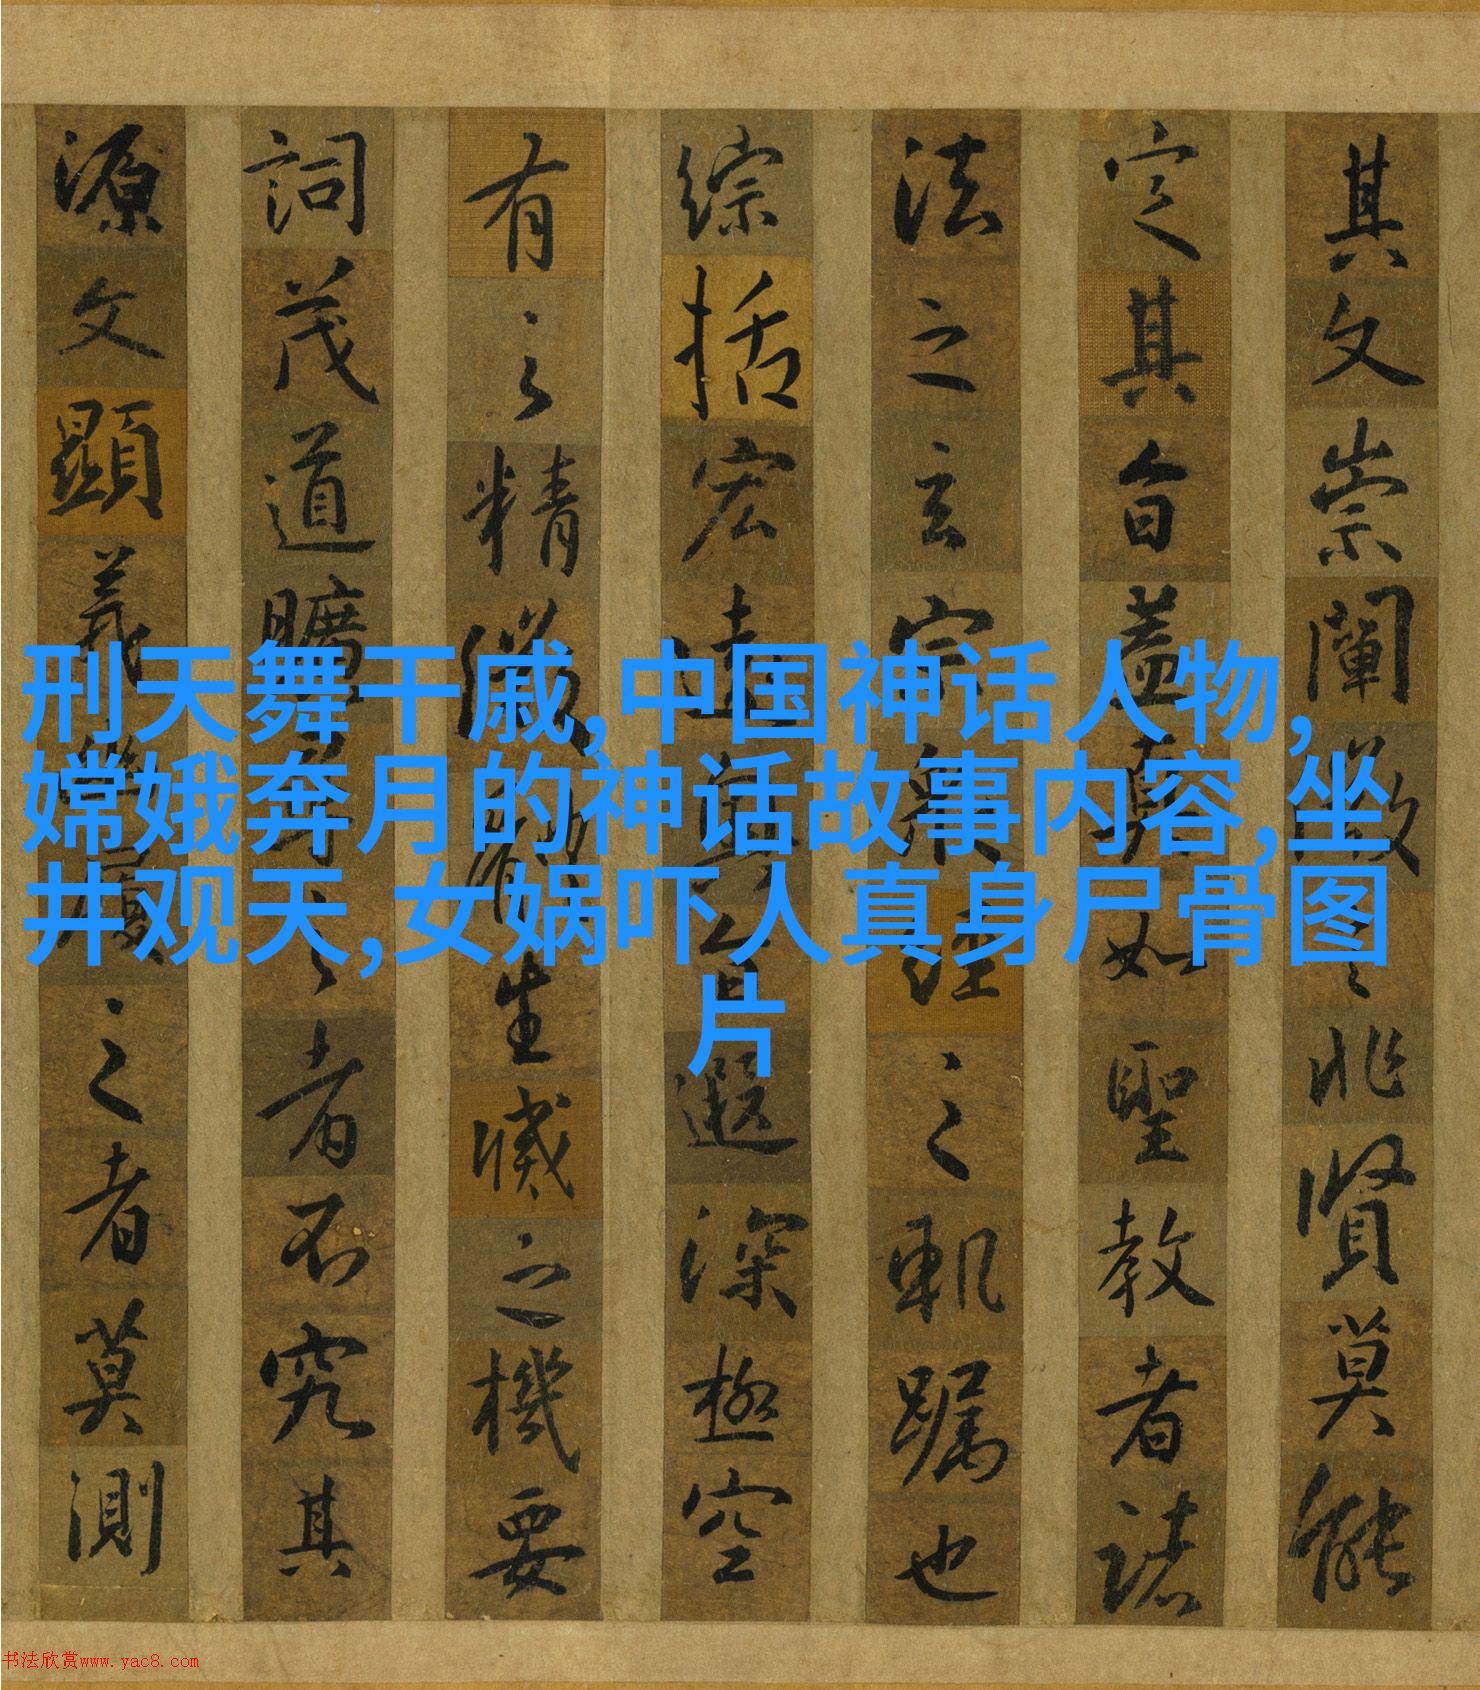 刑天舞干戚,中国神话人物,
嫦娥奔月的神话故事内容,坐
井观天,女娲吓人真身尸骨图
片
其文崇闡微言非賢莫能
定其旨蓋真如聖教者諸
法之玄宗衆經之軌躅也
綜括宏遠奧旨遐深極空
有之精微體生滅之機要
詞茂道曠尋之者不究其
源文顯義幽履之者莫測
书法欣赏www.yac8.com